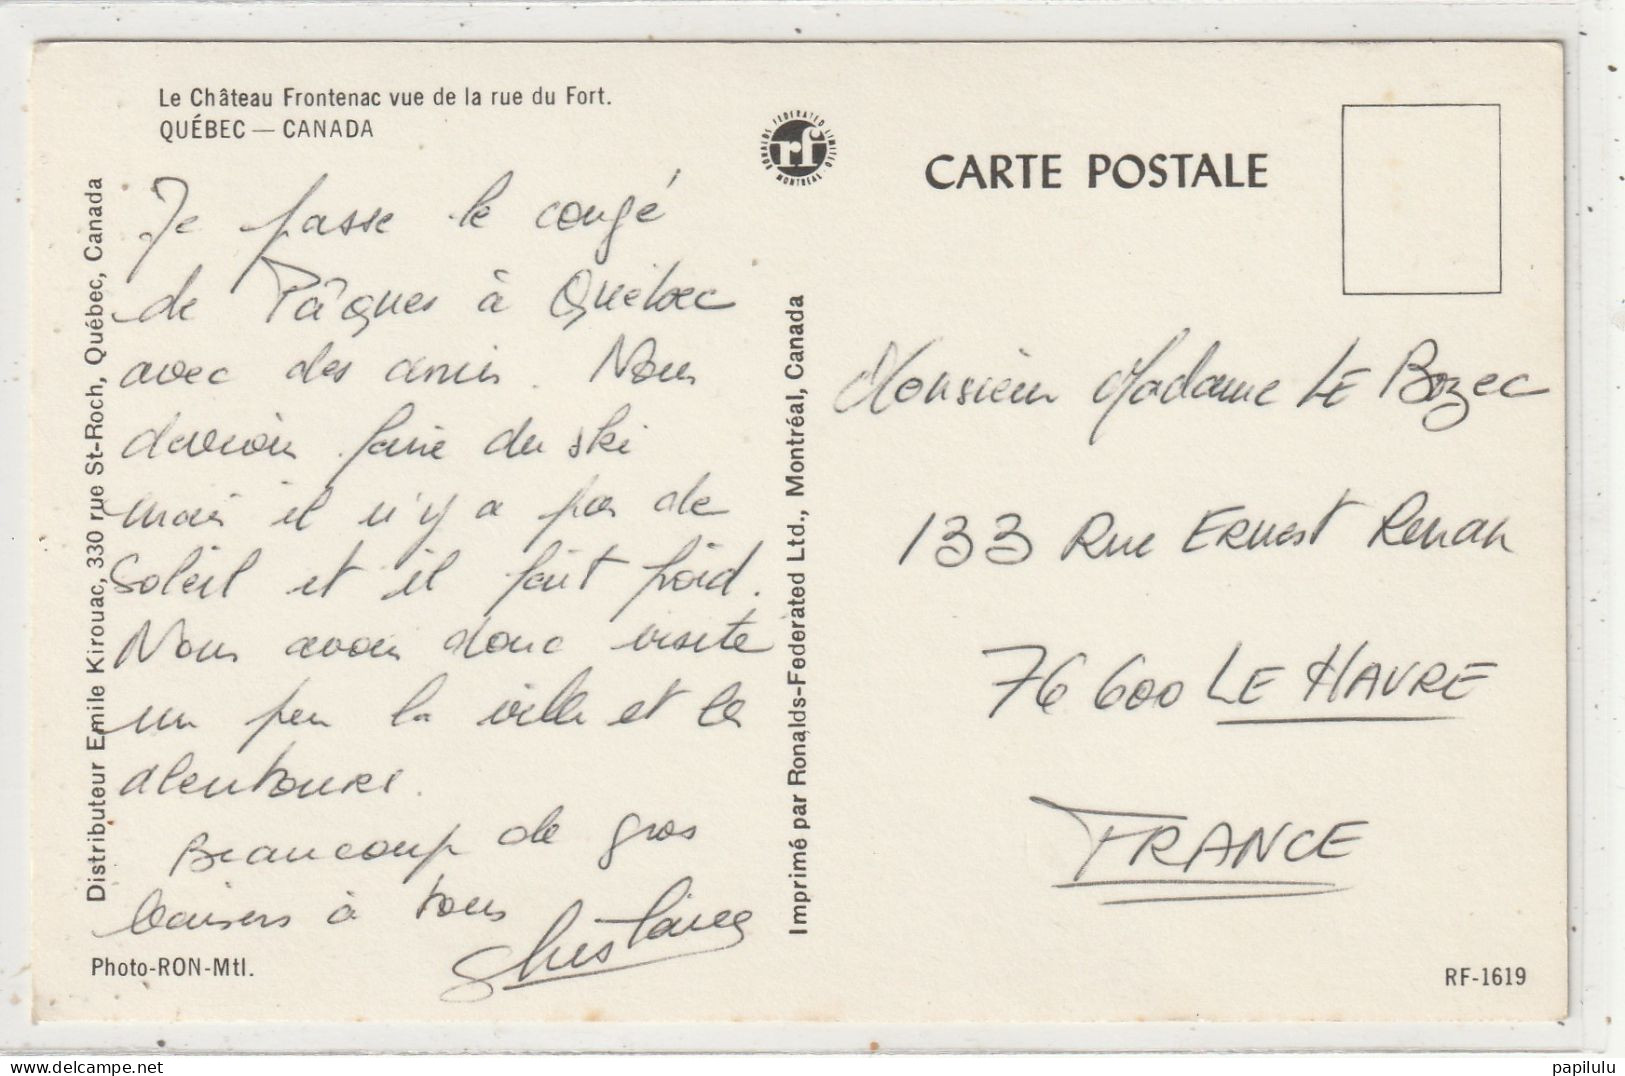 Le Château Frontenac vue de la rue du Fort.
QUÉBEC — CANADA
Je passe le congé
de Pâques à Québec
avec des amis. Nous
devions faire du ski
mais il n'y a pas de
Soleil et il fait froid.
Nous avons donc visité
un peu la ville et les
alentours.
Beaucoup de gros
baisers à tous
Ghislaine
Photo-RON-Mtl.
Distributeur Emile Kirouac, 330 rue St-Roch, Québec, Canada
RONALDS FEDERATED LIMITED
rf
MONTREAL
Imprimé par Ronalds-Federated Ltd., Montréal, Canada
CARTE POSTALE
Monsieur Madame LE Bozec
133 Rue ERnest Renan
76 600 LE HAVRE
FRANCE
RF-1619
papilulu